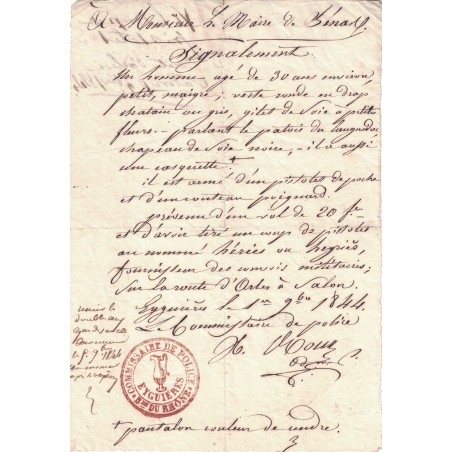 A Monsieur Le Maire de Sénas.
Signalement
Un homme agé de 30 ans environ,
petit, maigre; veste ronde en drap
chatain ou gris, gilet de soie à petites
fleurs. - parlant le patois du languedoc
chapeau de soie noire, - il a aussi
une casquette +
il est armé d'un pistolet de poche
et d'un couteau poignard.
prévenu d'un vol de 20 fr
et d'avoir tiré un coup de pistolet
au nommé
fournisseur des convois militaires,
sur la route d'Arles à Salon.
Eyguières le 1er 9bre 1844.
Le Commissaire de police
COMMISSAIRE DE POLICE
EYGUIÈRES
Bes DU RHÔNE
le 5 9bre 1844
+ pantalon couleur de cendre.